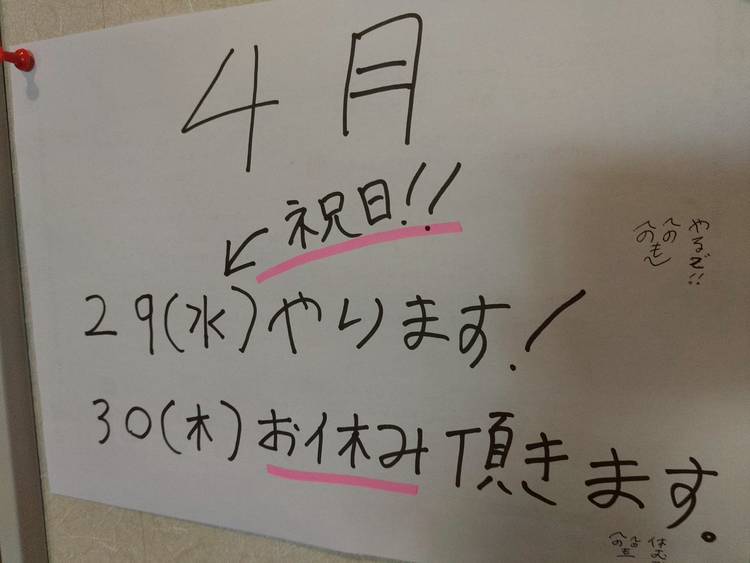 4月
祝日!!
29(水)やります!
30(木)お休み頂きます。
やるぞ!!